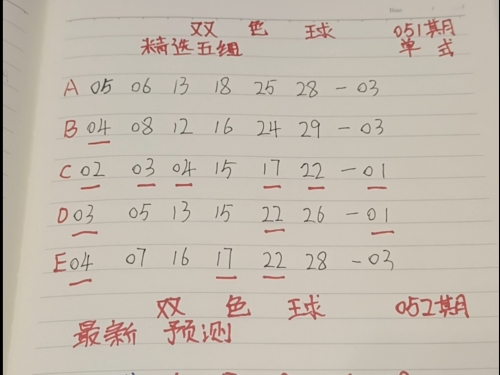 双 色 球 051期
精选五组 单 式
A 05 06 13 18 25 28 - 03
B 04 08 12 16 24 29 - 03
C 02 03 04 15 17 22 - 01
D 03 05 13 15 22 26 - 01
E 04 07 16 17 22 28 - 03
双 色 球 052期
最新 预测